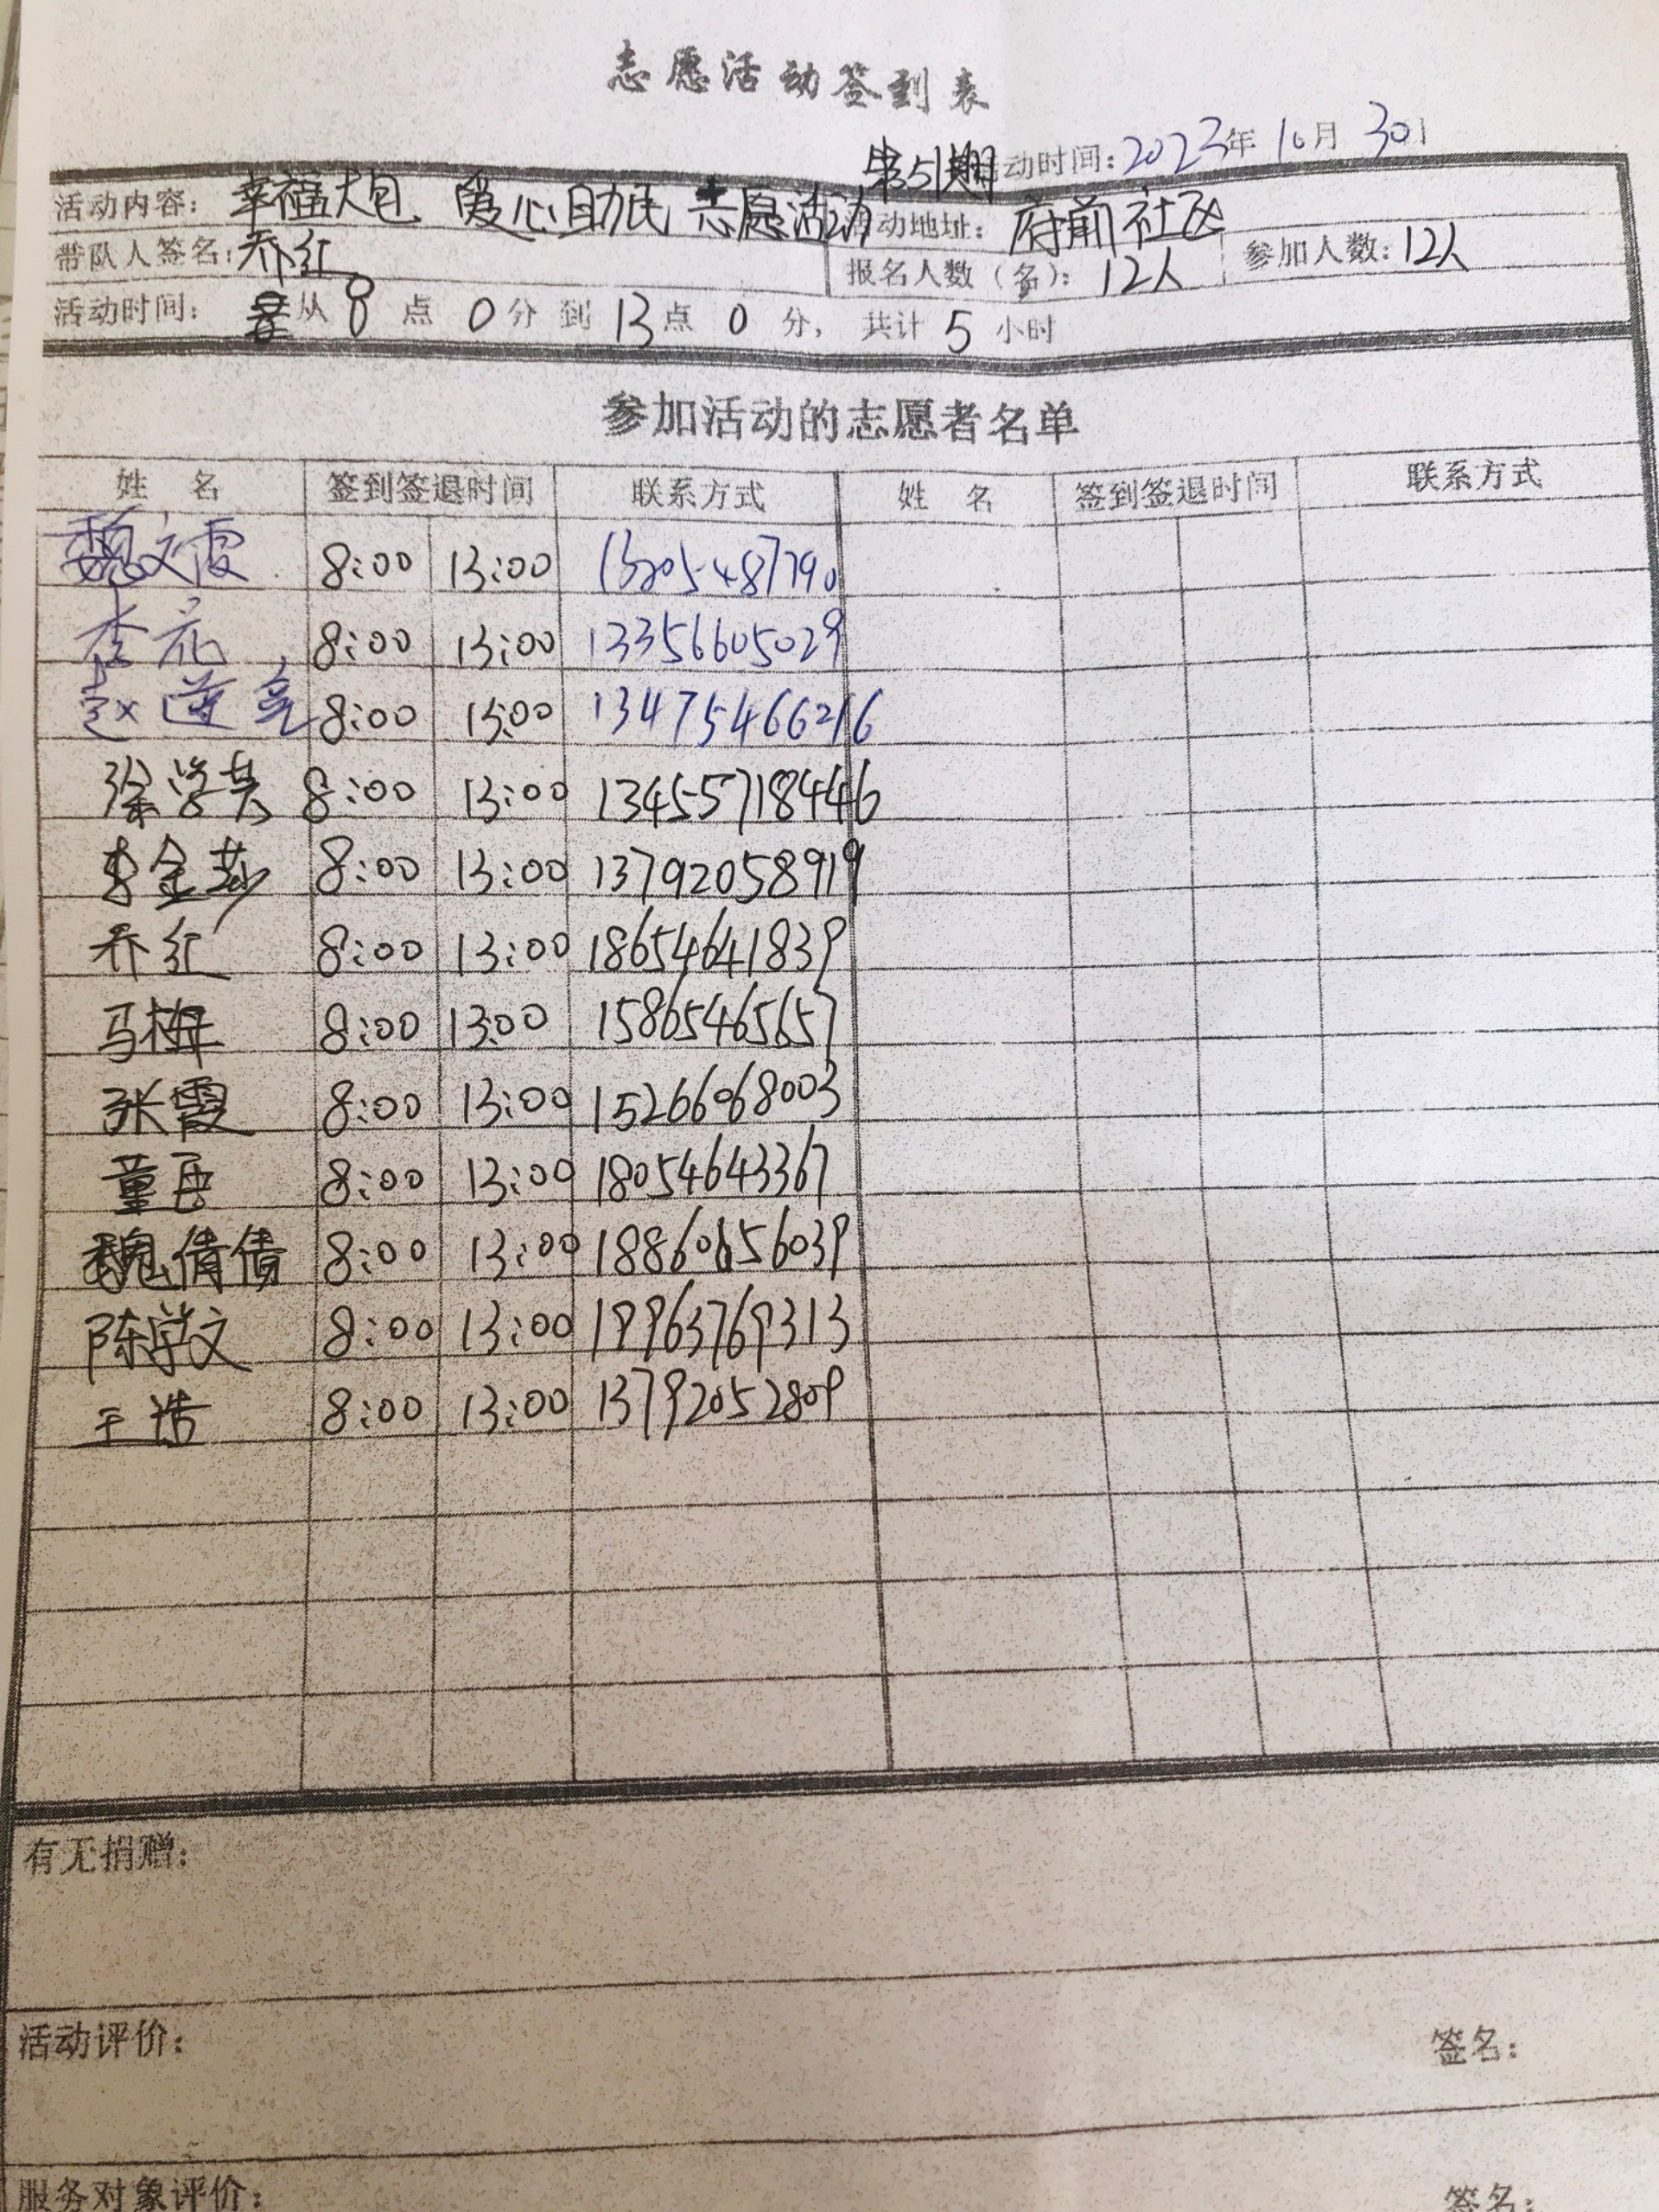 志愿活动签到表
第51期 活动时间：2023年10月30日
活动内容：幸福大包 爱心助民 志愿活动 活动地址：府前社区
带队人签名：乔红 报名人数（名）：12人 参加人数：12人
活动时间： 从 8 点 0 分 到 13 点 0 分， 共计 5 小时
参加活动的志愿者名单
姓 名 签到签退时间 联系方式 姓 名 签到签退时间 联系方式
魏文霞 8:00 13:00 13205487790
李花 8:00 13:00 13356605029
赵莲亮 8:00 13:00 13475466216
徐学芸 8:00 13:00 13455718446
李金莎 8:00 13:00 13792058919
乔红 8:00 13:00 18654641839
马梅 8:00 13:00 15865465657
张霞 8:00 13:00 15266068003
董 8:00 13:00 18054643367
魏倩倩 8:00 13:00 18860656039
陈学文 8:00 13:00 19963769313
王浩 8:00 13:00 13792052809
有无捐赠：
活动评价： 签名：
服务对象评价： 签名：